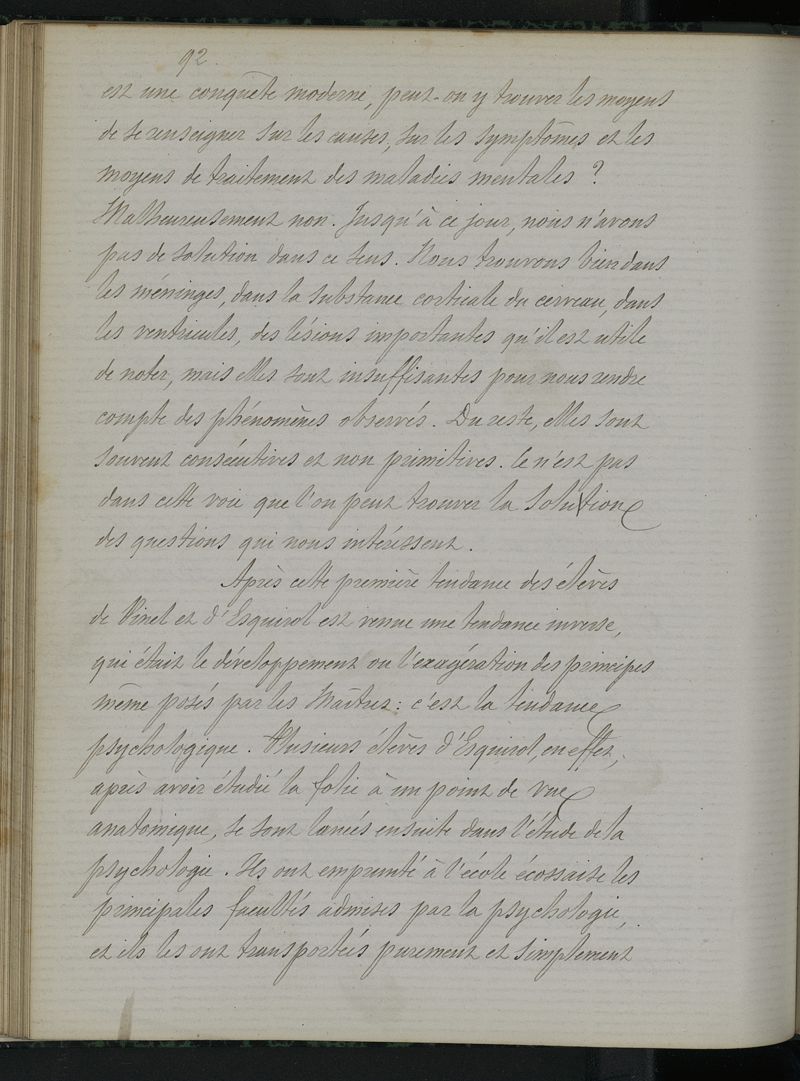 92.
est une conquête moderne, peut-on y trouver les moyens
de se renseigner sur les causes, sur les symptômes et les
moyens de traitement des maladies mentales ?
Malheureusement non. Jusqu'à ce jour, nous n'avons
pas de solution dans ce sens. Nous trouvons bien dans
les méninges, dans la substance corticale du cerveau, dans
les ventricules, des lésions importantes qu'il est utile
de noter, mais elles sont insuffisantes pour nous rendre
compte des phénomènes observés. Du reste, elles sont
souvent consécutives et non primitives. Ce n'est pas
dans cette voie que l'on peut trouver la solution
des questions qui nous intéressent.
Après cette première tendance des élèves
de Pinel et d'Esquirol est venue une tendance inverse,
qui était le développement ou l'exagération des principes
même posés par les Maîtres : c'est la tendance
psychologique. Plusieurs élèves d'Esquirol, en effet,
après avoir étudié la folie à un point de vue
anatomique, se sont lancés ensuite dans l'étude de la
psychologie. Ils ont emprunté à l'école écossaise les
principales facultés admises par la psychologie,
et ils les ont transportées purement et simplement